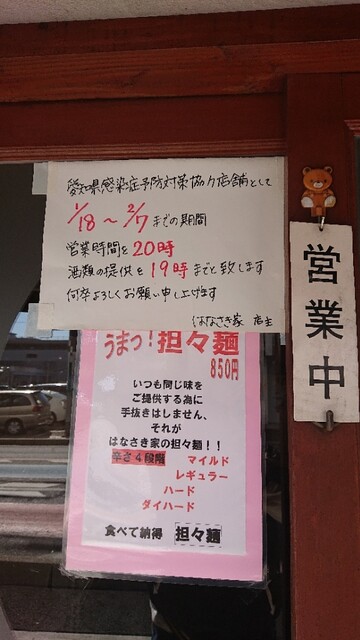 愛知県感染症予防対策協力店舗として
1/18～2/7までの期間
営業時間を20時
酒類の提供を19時までと致します
何卒よろしくお願い申し上げます
はなさき家 店主
営業中
うまっ!担々麺
850円
いつも同じ味を
ご提供する為に
手抜きはしません、
それが
はなさき家の担々麺!!
辛さ4段階 マイルド
レギュラー
ハード
ダイハード
食べて納得 担々麺